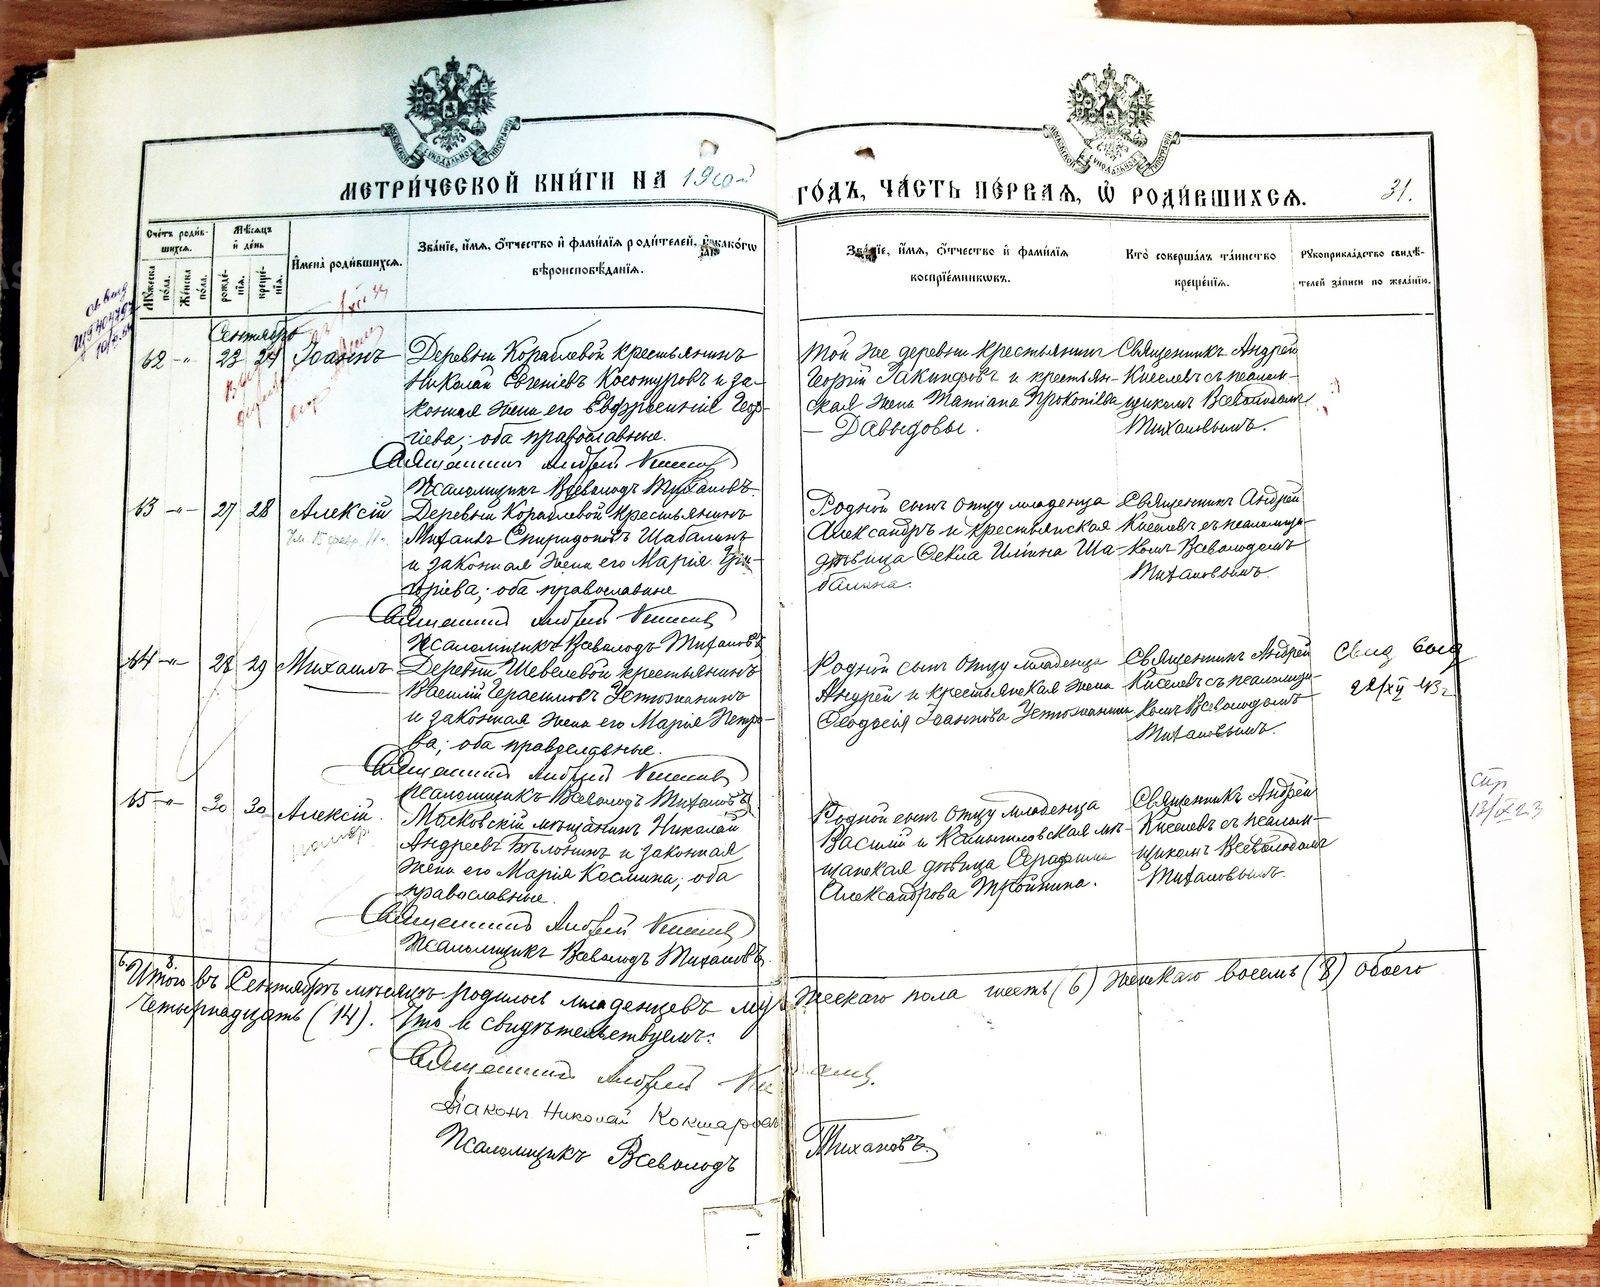 МЕТРИ́ЧЕСКОЙ КНИ́ГИ НА 1910й
ГО́ДЪ, ЧА́СТЬ ПЕ́РВАЯ, Ѡ РОДИ́ВШИХСЯ.
31.
Сче́тъ роди́в-
шихся.
Му́жеска
по́ла.
Же́нска
по́ла.
Мѣ́сяцъ
и де́нь
рожде́-
нія.
креще́-
нія.
Имена̀ роди́вшихся.
Зва́ніе, и́мя, о́тчество и фами́лія роди́телей, и како́гѡ
вѣроисповѣ́данія.
Зва́ніе, и́мя, о́тчество и фами́лія
воспріе́мникѡвъ.
Кто̀ соверша́лъ та́инство
креще́нія.
Рꙋкоприкла́дство свидѣ́-
телей за́писи по жела́нію.
Сентябрь
62 -"- 23 24 Іоаннъ
Деревни Кораблевой крестьянинъ
Николай Евгеніевъ Косотуровъ и за-
конная жена его Евфросинія Геор-
гіева; оба православные.
Священникъ Андрей Киселевъ
Псаломщикъ Всеволодъ Тихановъ.
Той же деревни крестьянин
Георгій Іакинфовъ и крестьян-
ская жена Татіана Прокопіева
— Давыдовы.
Священникъ Андрей
Киселевъ съ псалом-
щикомъ Всеволодомъ
Тихановымъ.
63 -"- 27 28 Алексій
Деревни Кораблевой крестьянинъ
Михаилъ Спиридоновъ Шабалинъ
и законная жена его Марія Гри-
горіева; оба православные
Священникъ Андрей Киселевъ
Псаломщикъ Всеволодъ Тихановъ
Родной сынъ отцу младенца
Александръ и крестьянская
дѣвица Ѳекла Иліина Ша-
балина.
Священникъ Андрей
Киселевъ съ псаломщи-
комъ Всеволодомъ
Тихановымъ.
64 -"- 28 29 Михаилъ
Деревни Шевелевой крестьянинъ
Василій Герасимовъ Устюжанинъ
и законная жена его Марія Петро-
ва; оба православные.
Священникъ Андрей Киселевъ
Псаломщикъ Всеволодъ Тихановъ
Родной сынъ отцу младенца
Андрей и крестьянская жена
Ѳеодосія Іоаннова Устюжанина
Священникъ Андрей
Киселевъ съ псаломщи-
комъ Всеволодомъ
Тихановымъ.
65 -"- 30 30 Алексій.
Московскій мѣщанинъ Николай
Андреевъ Бѣлонинъ и законная
жена его Марія Космина; оба
православные.
Священникъ Андрей Киселевъ
Псаломщикъ Всеволодъ Тихановъ.
Родной сынъ отцу младенца
Василій и Камышловская мѣ-
щанская дѣвица Серафима
Александрова Тройнина.
Священникъ Андрей
Киселевъ съ псалом-
щикомъ Всеволодомъ
Тихановымъ.
Итого въ Сентябрѣ мѣсяцѣ родилось младенцевъ мужескаго пола шесть (6) женскаго восемь (8) обоего
четырнадцать (14). Что и свидѣтельствуемъ:
Священникъ Андрей Киселевъ.
Діаконъ Николай Кокшаровъ
Псаломщикъ Всеволодъ Тихановъ.